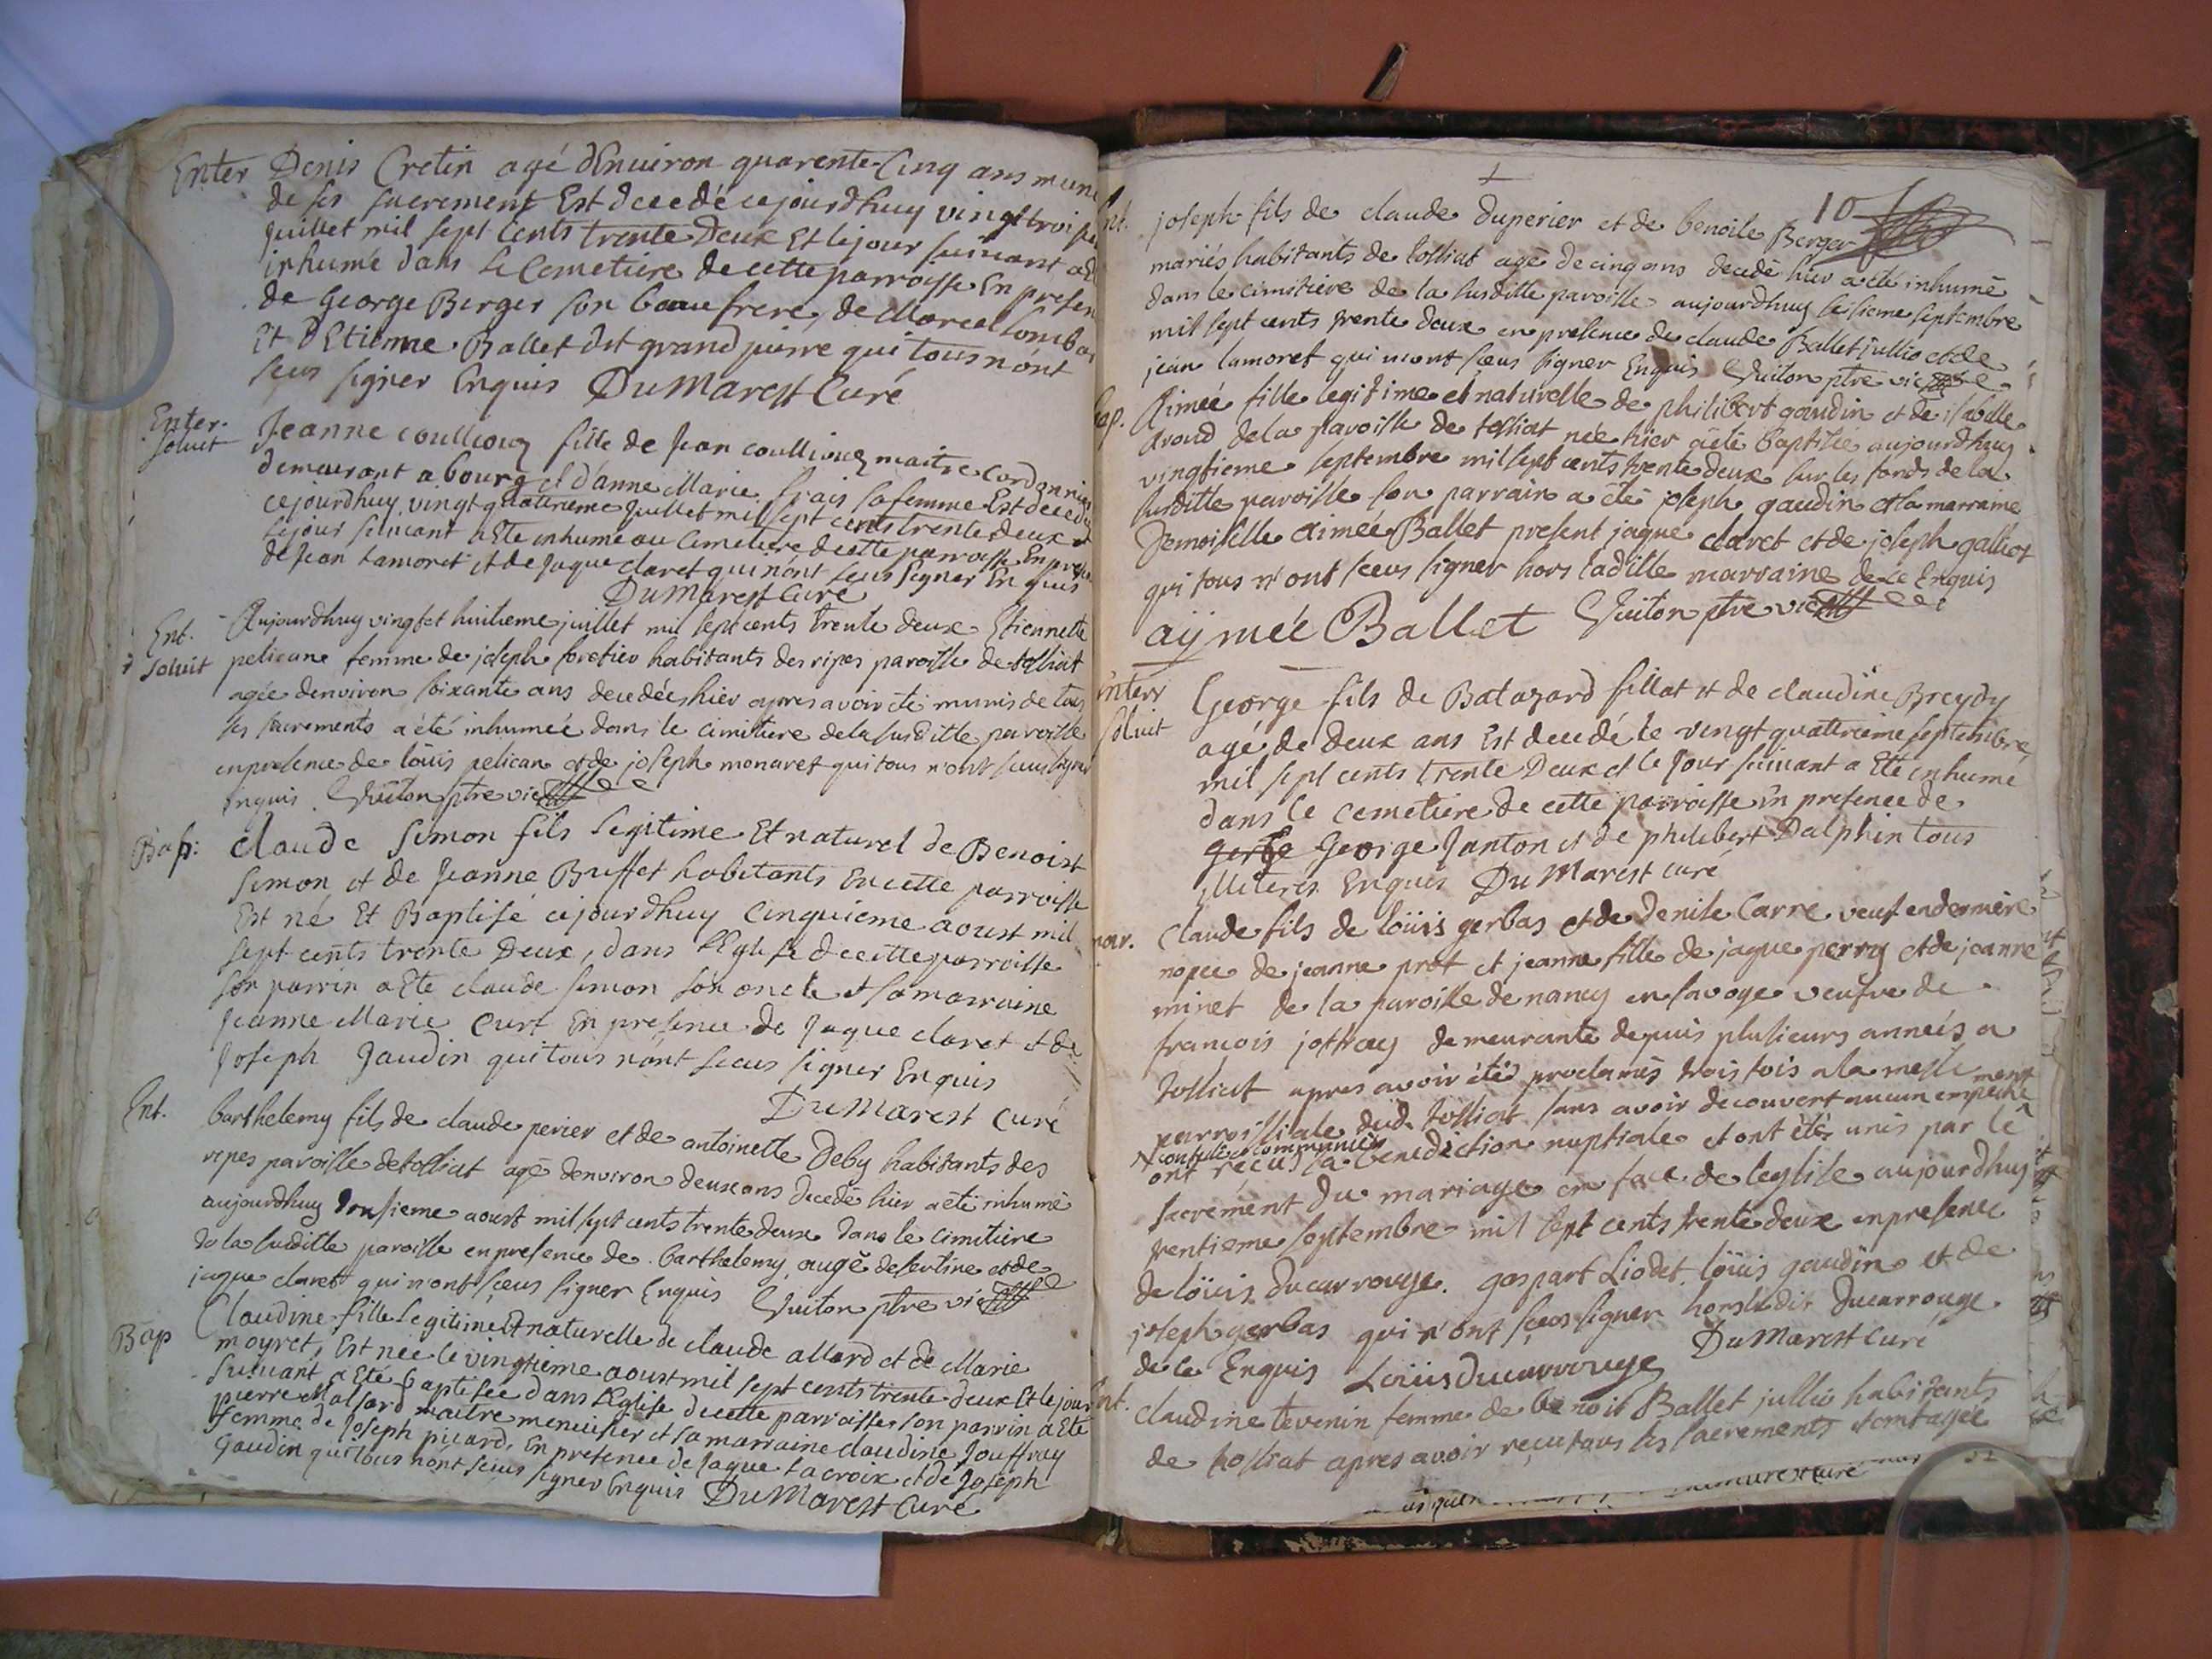 Enter Denis Cretin agé dEnuiron quarente-Cinq ans muni
de ses sacrement Est decedé cejourdhuy vingt trois
Juillet mil sept Cents trente Deux Et lejour suiuant a
inhumé dans le Cemetiere de cette parroisse En presen
de George Berger son beau frere, de Marcel Lomba
Et dEtienne Ballet dit grand pierre qui tous nónt
sceus signer Enquis DuMarest Curé
Enter.
soluit
Jeanne coullioug fille de Jean coullioug maitre Cordonnier
demeurant a bourg et d'anne Marie frais sa femme Est decedé
cejourdhuy vingt quatrieme Juillet mil sept cents trente deux et
lejour suiuant a Ete inhumé au Cimetiere decette parroisse En pres
de Jean Lamoret et de Jaque claret qui nónt sceus signer Enquis
DuMarest Curé
Ent.
soluit
Aujourdhuy vingt et huitieme juillet mil sept cents trente deux Etiennette
pelicane femme de joseph foretier habitants des ripes paroisse de tossiat
agée denviron soixante ans decedée hier apres avoir été munis de tous
les sacrements a été inhumeé dans le cimitiere dela susditte paroisse
enpresence de loüis pelican et de joseph monaret qui tous n'ont sceus signer
enquis. Guiton ptre vic
Bap: Claude Simon fils legitime Et naturel de Benoist
Simon et de Jeanne Buffet habitants En cette parroisse
Est né Et Baptisé cejourdhuy Cinquieme aoust mil
sept cents trente Deux, dans lEglise decette parroisse
son parrin a Ete claude simon son oncle et sa marraine
Jeanne Marie Curt En presence de Jaque claret et de
Joseph Gaudin qui tous nónt sceus signer Enquis
DuMarest Curé
Ent. barthelemy fils de claude perier et de antoinette Deby habitants des
ripes paroisse de tossiat agé denviron deux ans decedé hier a été inhumé
aujourdhuy aoust mil sept cents trente deux dans le cimitiere
de la susditte paroisse enpresence de barthelemy augé et de
jaque claret qui n'ont sceus signer Enquis Guiton ptre vic
Bap Claudine fille legitime Et naturelle de claude allard et de Marie
moyret, Est née le vingtieme aoust mil sept cents trente deux Et le jour
suiuant a Eté baptisée dans lEglise decette parroisse son parrin a Ete
pierre maitre menuisier et sa marraine claudine Jouffray
femme de Joseph picard, En presence de Jaque Lacroix et de Joseph
Gaudin qui tous nónt sceus signer Enquis DuMarest Curé
10
Ent. joseph fils de claude Duperier et de benoite Berger
mariés habitants de tossiat agé de cinq ans decedé hier a été inhumé
dans le cimitiere de la susditte paroisse aujourdhuy septembre
mil sept cents trente deux en presence de claude Ballet jullio et de
jean lamoret qui n'ont sceus signer Enquis Guiton ptre vic
Bap. Aimeé fille legitime et naturelle de philibert gaudin et de isabelle
Aroud dela paroisse de tossiat née hier a été baptisée aujourdhuy
vingtieme septembre mil sept cents trente deux sur les fonds de la
susditte paroisse son parrain a été joseph gaudin et la marraine
Demoiselle aimeé Ballet present jaque claret et de joseph galliot
qui tous n'ont sceus signer hors laditte marraine de ce Enquis
aÿmée Ballet Guiton ptre vic
Enterr
soluit
George fils de Batazard fillot et de claudine Breydy
agé de deux ans Est decedé le vingt quattrieme septembre
mil sept cents trente Deux et le Jour suiuant a Eté inhumé
dans le cemetiere de cette parroisse En presence de
George Janton et de philibert Dalphin tous
Illiteres Enquis DuMarest curé
mar. Claude fils de loüis gerbas et de Denise Carre veuf enderniere
nopce de jeanne prot et jeanne fille de jaque perroy et de jeanne
minet de la paroisse de nancy en savoye veufve de
francois jottray demeurante depuis plusieurs anneés a
tossiat apres avoir été proclamés trois fois a la messe
parroissiale dud. tossiat sans avoir decouvert aucun empeche
ment
confesséz communiéz
ont reçus la benediction nuptiale et ont été unis par le
sacrement du mariage en face de leglise aujourdhuy
trentieme septembre mil sept cents trente deux enpresence
de loüis ducarrouge. gaspart Liodet loüis gaudin et de
joseph gerbas qui n'ont sceus signer hors ledit Ducarrouge
de ce Enquis Loüis ducarrouge DuMarest Curé
Ent. Claudine tevenin femme de benoit Ballet jullio habitants
de tossiat apres avoir reçu tous les sacrements